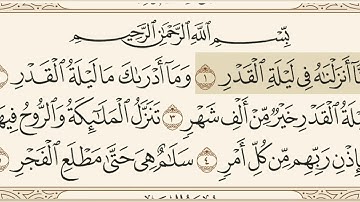 بِسْمِ ٱللَّهِ ٱلرَّحْمَٰنِ ٱلرَّحِيمِ
نَّآ أَنزَلْنَٰهُ فِى لَيْلَةِ ٱلْقَدْرِ ١ وَمَآ أَدْرَىٰكَ مَا لَيْلَةُ ٱلْقَدْرِ
لَةُ ٱلْقَدْرِ خَيْرٌ مِّنْ أَلْفِ شَهْرٍ ٣ تَنَزَّلُ ٱلْمَلَٰٓئِكَةُ وَٱلرُّوحُ فِيهَ
بِإِذْنِ رَبِّهِم مِّن كُلِّ أَمْرٍ ٤ سَلَٰمٌ هِىَ حَتَّىٰ مَطْلَعِ ٱلْفَجْرِ